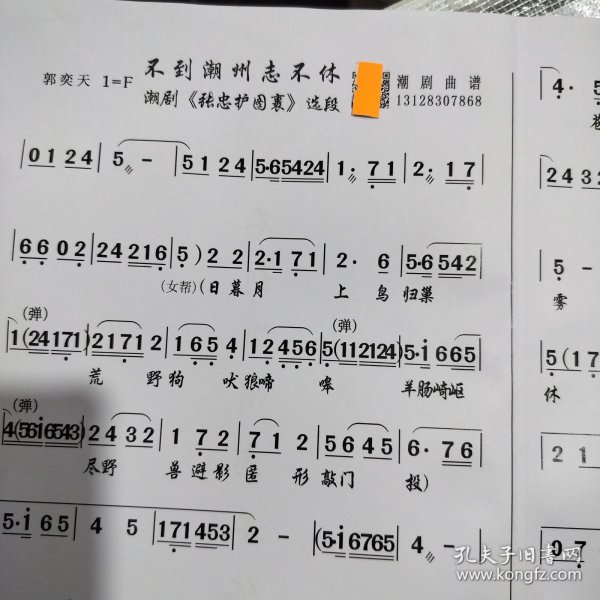 不到潮州志不休
郭奕天 1=F
潮剧《张忠护图裹》选段
潮剧曲谱
13128307868
|0124|5 - |5124|5·65424|1· 71|2· 17|
|6602|24216|5) 22|2·171|2· 6|5·6542|
(女帮)(日暮月 上 鸟 归巢
(弹) (弹)
1(24171)|21712|165 4|12456|5(112124)|5·i 665|
荒 野狗 吠狼啼 嗥 羊肠崎岖
(弹)
4(56i6543)|24 32|1 72|71 2|5645|6· 76|
尽野 兽避影匿 形敲门 投)
5·i 65|4 5|171453|2 - |(5·i6765|4 -
4· 5
2432
5 -
雾
5(17
休
2 1
07
孔夫子旧书网
www.kongfz.com